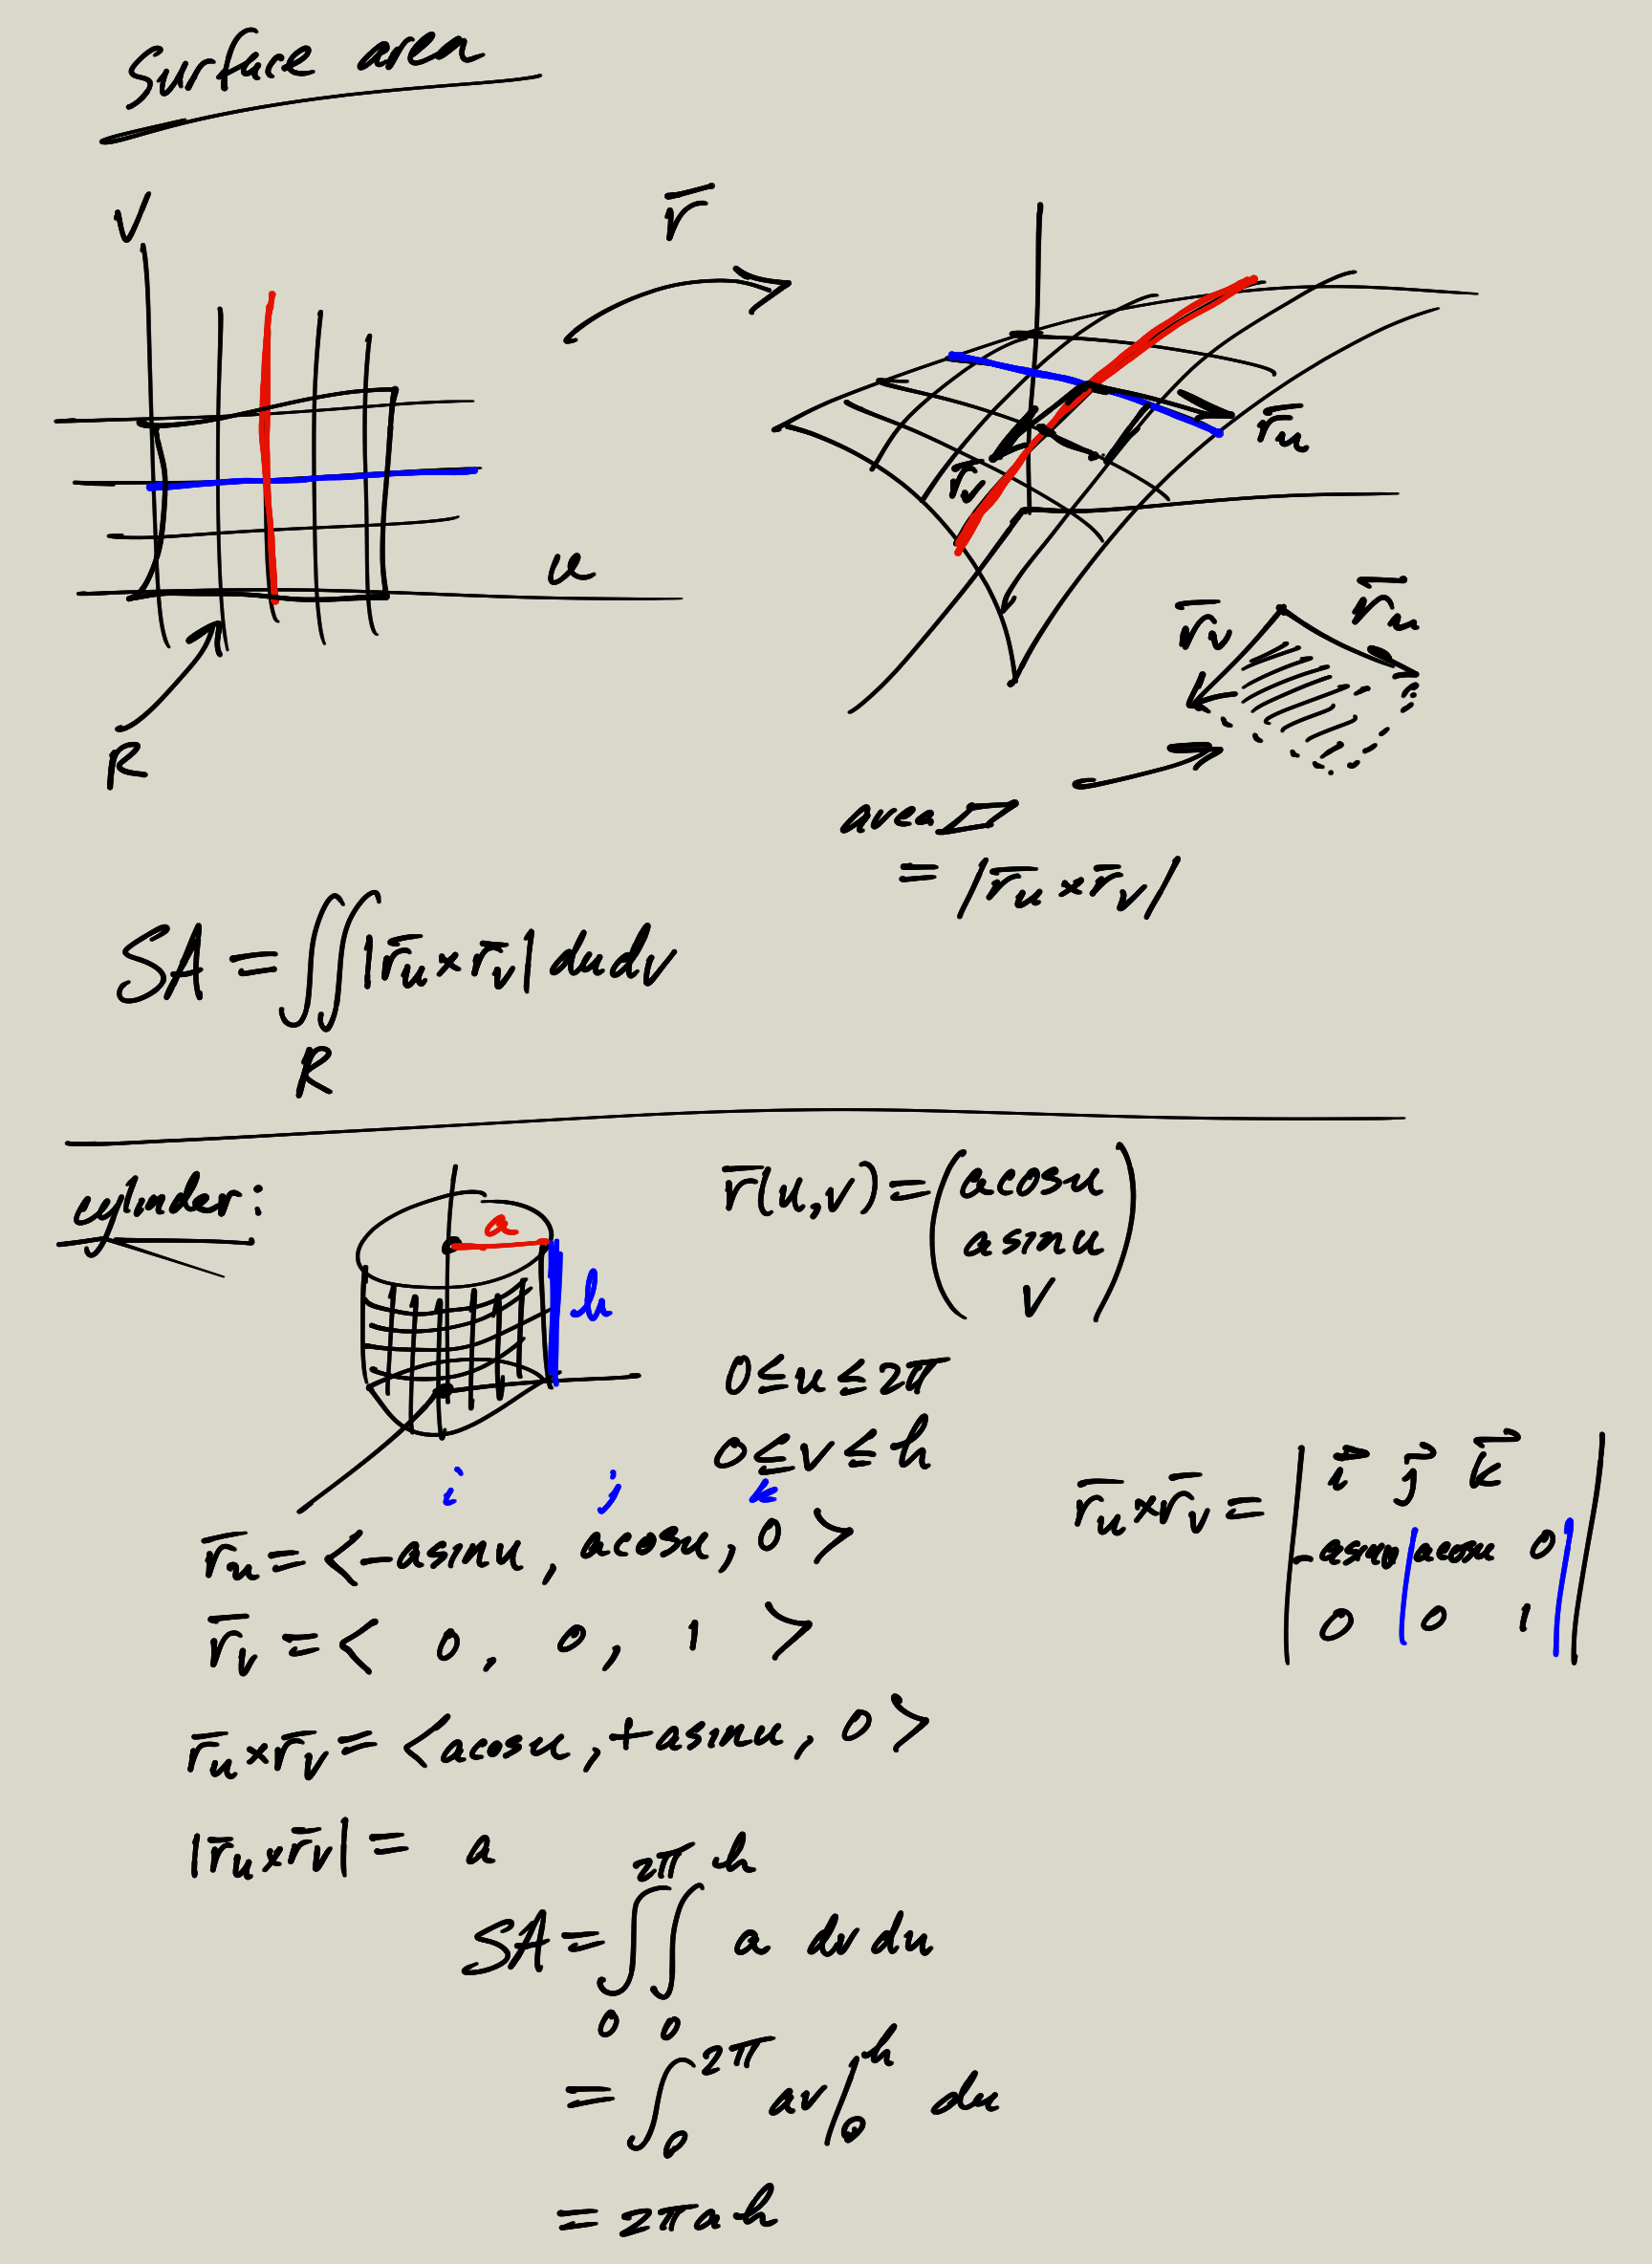 Surface area
V
r̄
u
R
r̄u
r̄v
r̄v
r̄u
area ▱
= |r̄u × r̄v|
SA = ∬ |r̄u × r̄v| du dv
R
cylinder:
a
h
r̄(u,v) = (acosu
asinu
v)
0 ≤ u ≤ 2π
0 ≤ v ≤ h
i j k
r̄u = < -asinu, acosu, 0 >
r̄v = < 0, 0, 1 >
r̄u × r̄v = | i⃗ j⃗ k⃗
-asinu acosu 0
0 0 1 |
r̄u × r̄v = < acosu, +asinu, 0 >
|r̄u × r̄v| = a
2π h
SA = ∫∫ a dv du
0 0
= ∫₀^2π av|₀^h du
= 2πah